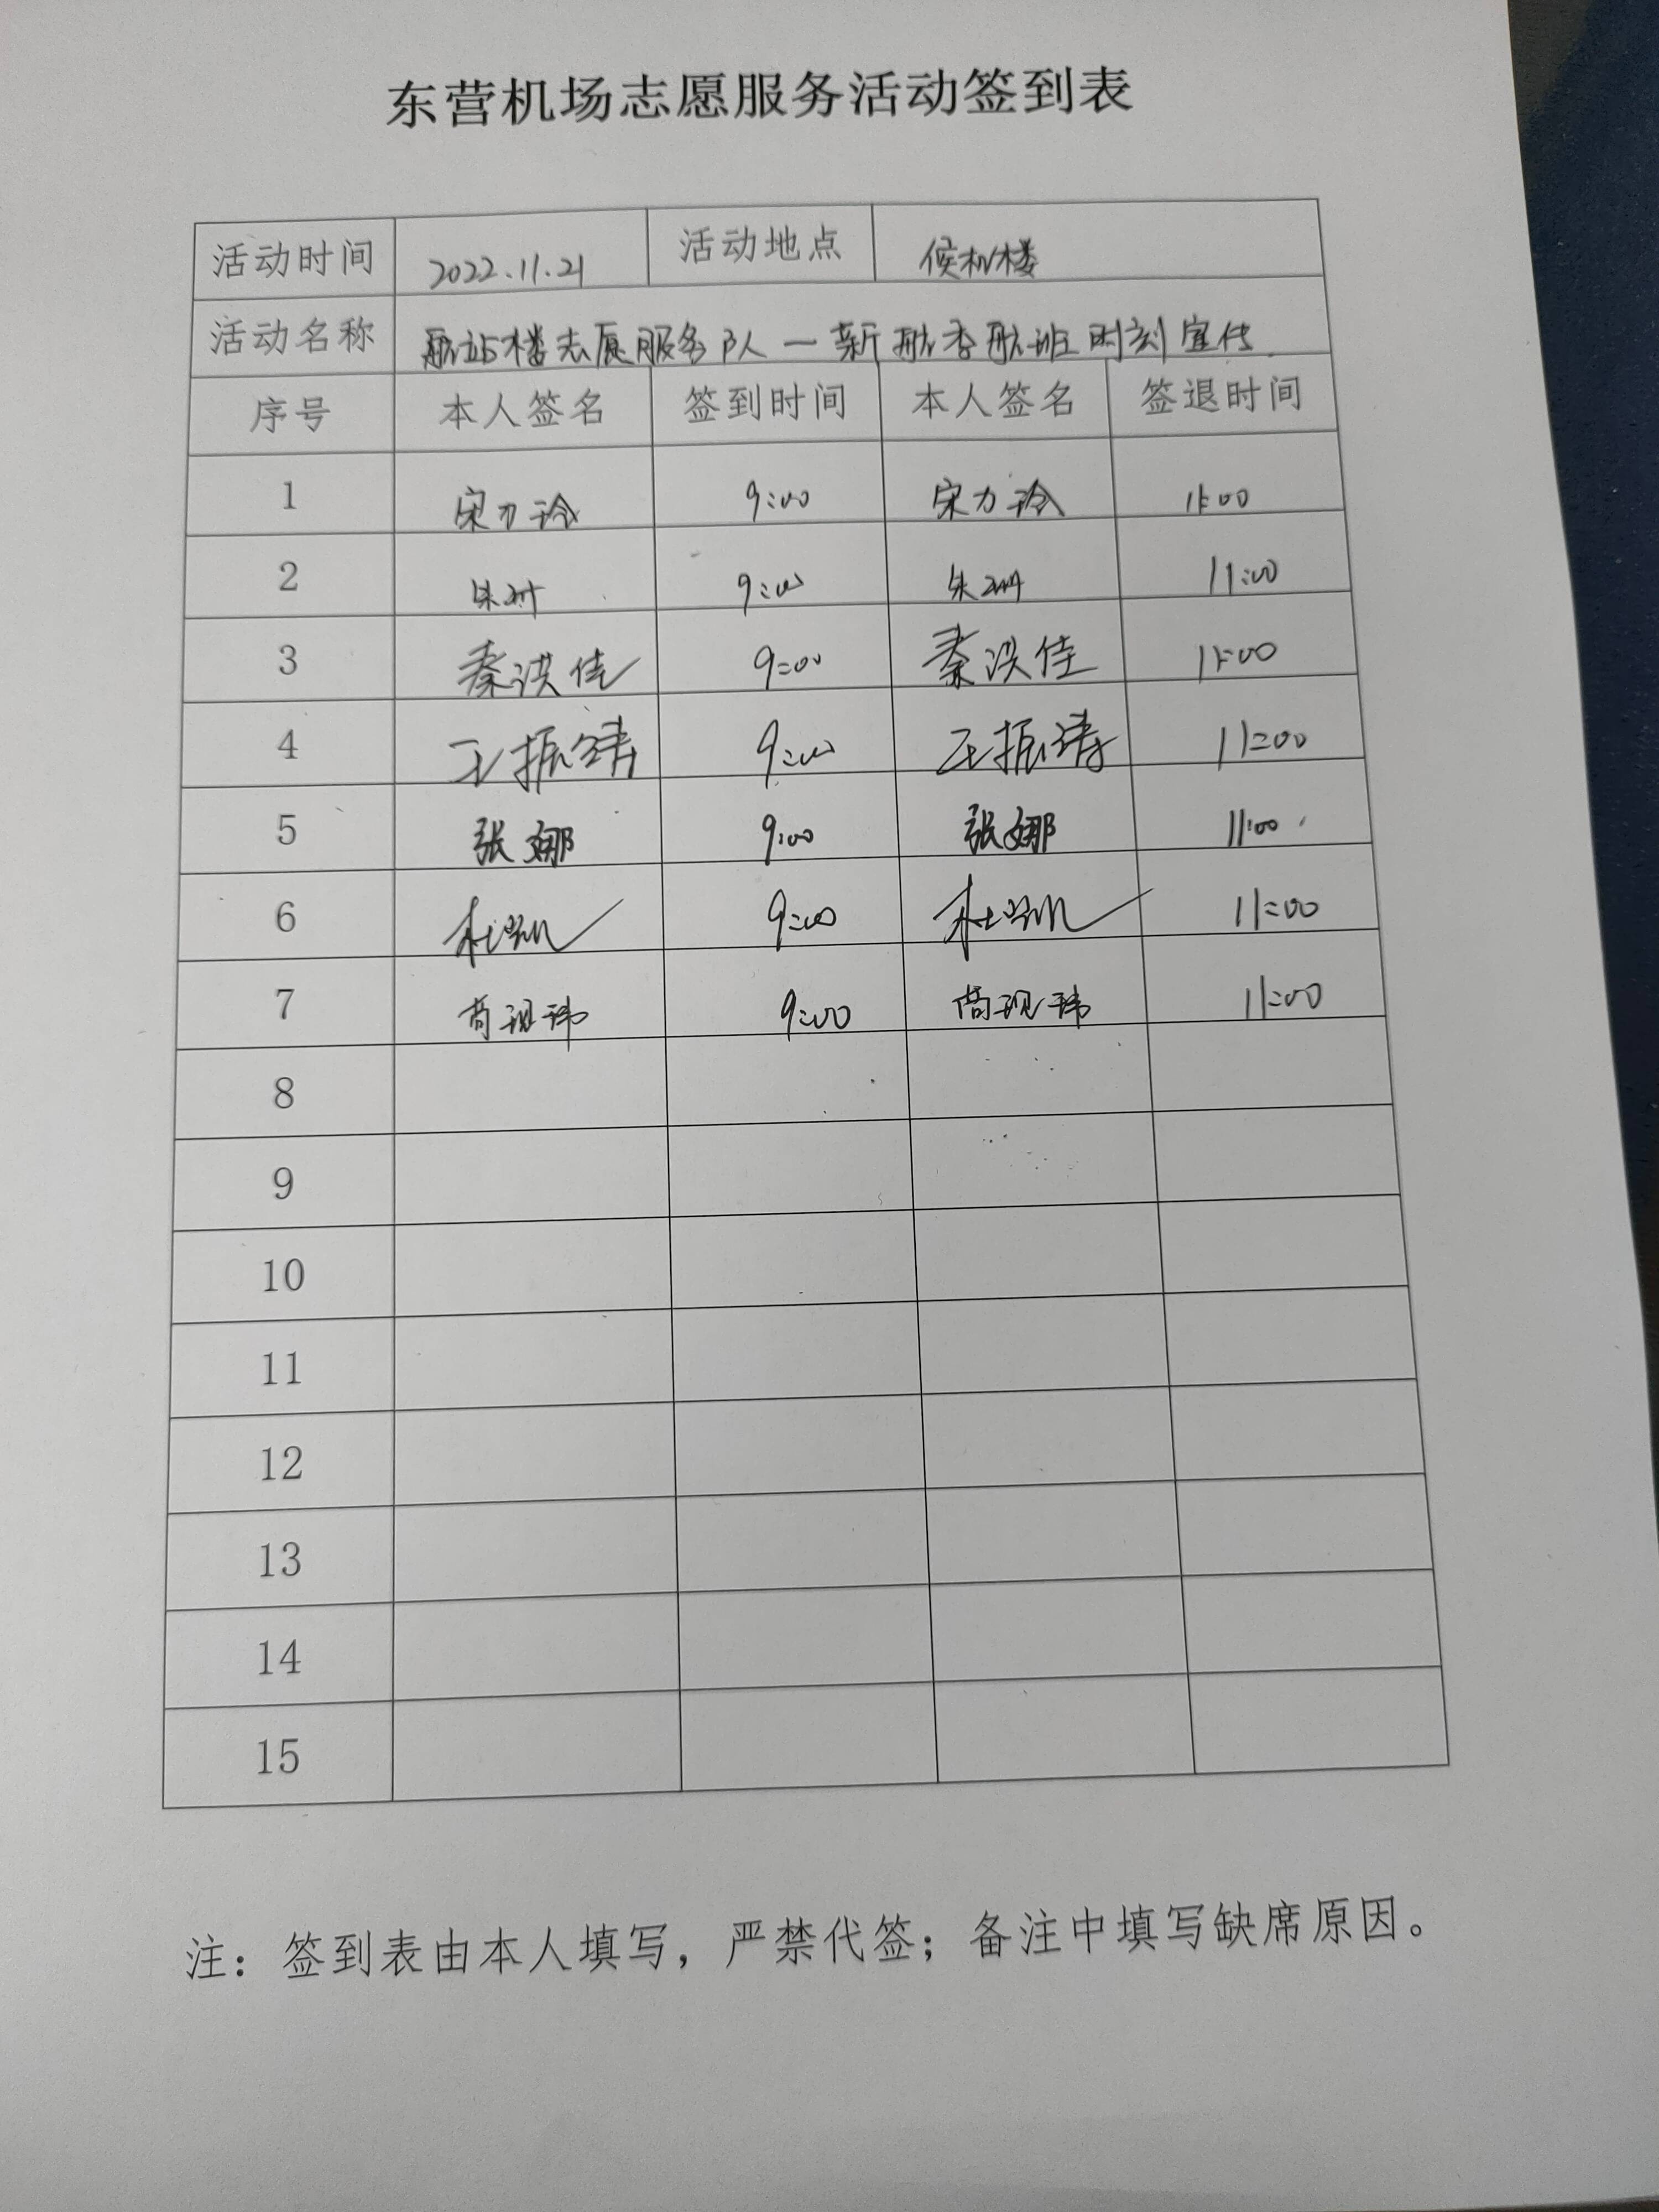 东营机场志愿服务活动签到表
活动时间 2022.11.21 活动地点 候机楼
活动名称 航站楼志愿服务队一新航季航班时刻宣传
序号 本人签名 签到时间 本人签名 签退时间
1 宋力玲 9:00 宋力玲 11:00
2 朱珊 9:00 朱珊 11:00
3 秦洪佳 9:00 秦洪佳 11:00
4 王振涛 9:00 王振涛 11:00
5 张娜 9:00 张娜 11:00
6 9:00 11:00
7 现玮 9:00 现玮 11:00
8
9
10
11
12
13
14
15
注：签到表由本人填写，严禁代签；备注中填写缺席原因。